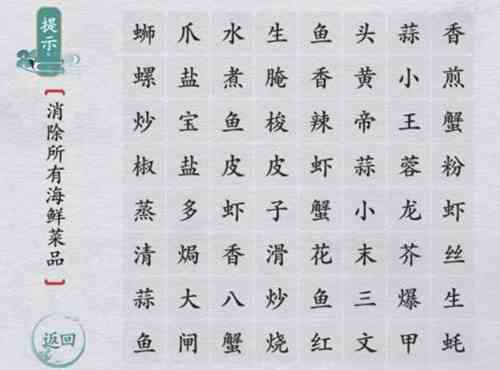 提示
【消除所有海鲜菜品】
返回
蛳爪水生鱼头蒜香
螺盐煮腌香黄小煎
炒宝鱼梭辣帝王蟹
椒盐皮皮虾蒜蓉粉
蒸多虾子蟹小龙虾
清焗香滑花末芥丝
蒜大八炒鱼三爆生
鱼闸蟹烧红文甲蚝